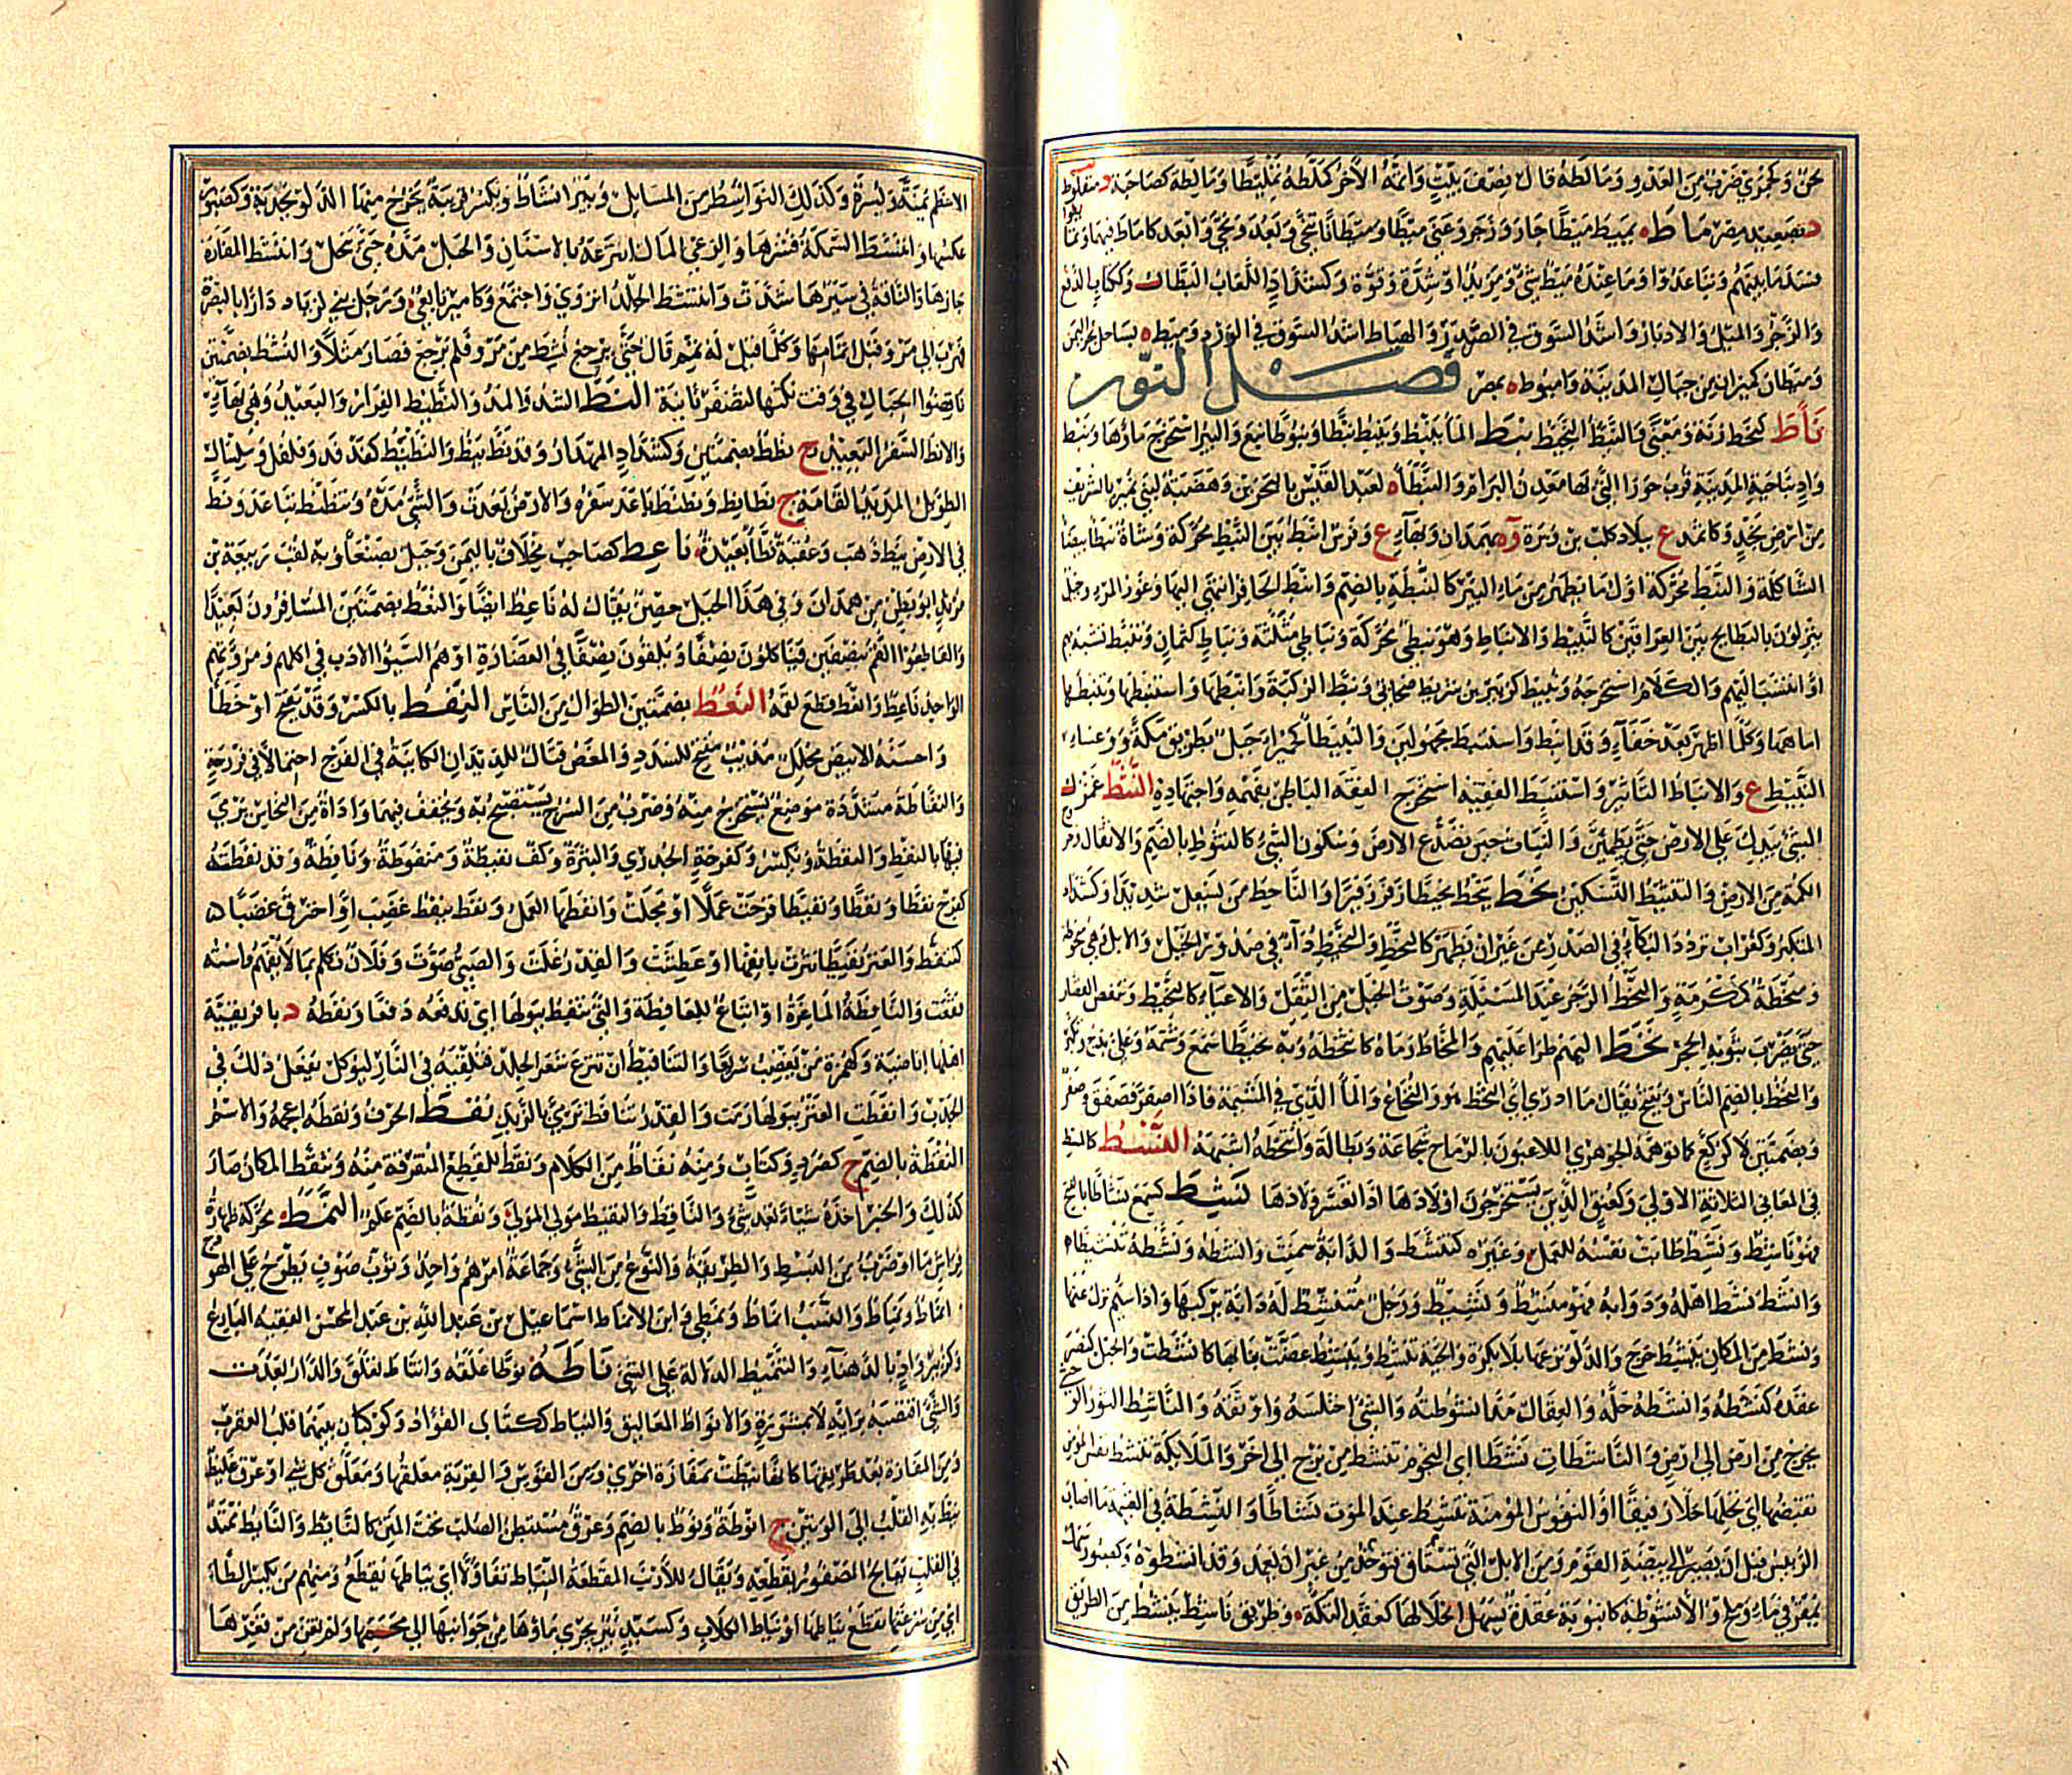 د بصعيد مصر ماط يميط ميطا جار وزجر وعني ميطا وميطانا تنحى وبعد ونحى وابعد كاماط فيهما وتمايطوا
فسد ما بينهم وتباعدوا وما عنده ميط شئ ومزيد او شدة وقوة وكشداد اللعاب البطال وككتاب الدفع
والزجر والميل والادبار واشد السوق في الصدر والهياط اشد السوق في الورد وميطة بساحل بحر اليمن
وميطان كميزان من جبال المدينة واميوط بمصر فصل النون
نأط كنحط زنة ومعنى والنئيط النحيط نبط الماء ينبط وينبط نبطا ونبوطا نبع والبئر استخرج ماءها ونبط
واد بناحية المدينة قرب حوراء التي بها معدن البرام والنبطاء لعبد القيس بالبحرين وهضبة لبني نمير بالشريف
من ارض نجد وكاثمد ع ببلاد كلب بن وبرة و بهمدان وبهاء ع وفرس انبط بين النبط محركة وشاة نبطاء بيضاء
الشاكلة والنبط محركة اول ما يظهر من ماء البئر كالنبطة بالضم وانبط الحافر انتهى اليها وغور المرء وجيل
ينزلون بالبطايح بين العراقين كالنبيط والانباط وهو نبطي محركة ونباطي مثلثة ونباط كثمان وتنبط تشبه بهم
او انتسب اليهم والكلام استخرجه ونبيط كزبير بن شريط صحابي ونبط الركية وانبطها واستنبطها وتنبطها
اماهها وكلما اظهر بعد خفاء وقد انبط واستنبط مجهولين والنبيطاء كحميراء جبل بطريق مكة ووعساء
النبيط ع والانباط التاثير واستنبط الفقيه استخرج الفقه الباطن بفهمه واجتهاده النثط غمزك
الشئ بيدك على الارض حتى يطمئن والنبات حين يصدع الارض وسكون الشئ كالنثوط بالضم والاثقال وخروج
الكمأة من الارض والتنثيط التسكين نحط ينحط نحيطا زفر زفيرا والناحط من يسعل شديدا وكشداد
المتكبر وكغراب تردد البكاء في الصدر من غير ان يظهر كالنحط والنحيط والنحطة داء في صدور الخيل والابل وهي منحوطة
ومنحطة كمكرمة والنحط الزجر عند المسئلة وصوت الخيل من الثقل والاعياء كالنحيط وتنفس القصار
حين يضرب بثوبه الحجر نخط اليهم طرأ عليهم والمخاط رماه كانتخطه وبه نخيطا سمع وشتمه وعلي بذخ وتكبر
والنخط بالضم الناس ويفتح يقال ما ادري اي النخط هو والنخاع والماء الذي في المشيمة فاذا اصفر فصفق وصفر
وبضمتين لا كركع كما توهمه الجوهري اللاعبون بالرماح شجاعة وبطالة وانتخطه اشبهه النسط كالمسط
في المعاني الثلاثة الاولى وكعنق الذين يستخرجون اولادها اذا تعسر ولادها نشط كسمع نشاطا بالفتح
فهو ناشط ونشيط طابت نفسه للعمل وغيره كتنشط والدابة سمنت وانشطه ونشطه تنشيطا
وانشط نشط اهله ودوابه فهو منشط ونشيط ورجل متنشط له دابة يركبها واذا سئم نزل عنها
ونشط من المكان ينشط خرج والدلو نزعها بلا بكرة والحية تنشط وتنشط عضت بنابها كانشطت والحبل كنصر
عقده كنشطه وانشطه حله والعقال مد انشوطته والشئ اختلسه واوثقه والناشط الثور الوحشي
يخرج من ارض الى ارض والناشطات نشطا اي النجوم تنشط من برج الى اخر والملائكة تنشط نفس المؤمن
تقبضها اي تحلها حلا رفيقا او النفوس المؤمنة تنشط عند الموت نشاطا والنشيطة في الغنيمة ما اصاب
الرئيس قبل ان يصير الى بيضة القوم ومن الابل التي تستاق فتؤخذ من غير ان يعمد وقد انتشطوه وكصبور سمك
يمقر في ماء وملح والانشوطة كانبوبة عقدة يسهل انحلالها كعقد التكة وطريق ناشط ينشط من الطريق
الاعظم يمنة ويسرة وكذلك النواشط من المسايل وبئر انشاط وبكسر قريبة يخرج منها الدلو بجذبة وكصبور
عكسها وانتشط السمكة قشرها والرعي المال انتزعه بالاسنان والحبل مده حتى ينحل وانتشط المفازة
جازها والناقة في سيرها شدت وانتشط الجلد انزوى واجتمع وكامير تابعي ورجل بنى لزياد دارا بالبصرة
فهرب الى مرو قبل تمامها وكلما قيل له تمم قال حتى يرجع نشيط من مرو فلم يرجع فصار مثلا والنشط بضمتين
ناقضوا الحبال في وقت نكثها لتضفر ثانية النط الشد والمد والنطيط الفرار والبعيد وهي بهاء
والانط السفر البعيد ج نطط بضمتين وكشداد المهذار وقد نط ينط والنطنط كفدفد وفلفل وسلسال
الطويل المديد القامة ج نطانط ونطنط باعد سفره والارض بعدت والشئ مده وتنطنط تباعد ونط
في الارض ينط ذهب وعقبة نطاء بعيدة ناعط كصاحب مخلاف باليمن وجبل بصنعاء وبه لقب ربيعة بن
مرثد ابو بطن من همدان وفي هذا الجبل حصن يقال له ناعط ايضا والنعط بضمتين المسافرون بعيدا
والقاطعوا اللقم بنصفين فياكلون نصفا ويلقون نصفا في الغضارة او هم السيئوا الادب في اكلهم ومروءتهم
الواحد ناعط وانعط قطع لقمه النغط بضمتين الطوال من الناس النفط بالكسر وقد يفتح او خطأ
واحسنه الابيض محلل مذيب مفتح للسدد والمغص قتال للديدان الكاينة في الفرج احتمالا في فرزجة
والنفاطة مشددة موضع يستخرج منه وضرب من السرج يستصبح به ويخفف فيهما واداة من النحاس يرمى
فيها بالنفط والنفطة ويكسر وكفرحة الجدري والبثرة وكف نفيطة ومنفوطة ونافطة وقد نفطت
كفرح نفطا ونفطا ونفيطا قرحت عملا او مجلت وانفطها العمل ونفط ينفط غضب او احترق غضبا
كتنفط والعنز نفيطا نثرت بانفها او عطست والقدر غلت والصبي صوت وفلان تكلم بما لا يفهم واسته
نفقت والنافطة الماعزة او اتباع للعافطة والتي تنفط ببولها اي تدفعه دفعا ونفطة د بافريقية
اهلها اباضية وكهمزة من يغضب سريعا والتنافيط ان تنزع شعر الجلد فتلقيه في النار ليؤكل يفعل ذلك في
الجدب وانفطت العنز ببولها رمت والقدر تنافط ترمي بالزبد نقط الحرف ونقطه اعجمه والاسم
النقطة بالضم ج كصرد وكتاب ومنه نقاط من الكلام ونقط للقطع المتفرقة منه وتنقط المكان صار
كذلك والخبر اخذه شيئا بعد شئ والناقط والنقيط مولى المولى ونقطة بالضم علم النمط محركة ظهارة
فراش ما او ضرب من البسط والطريقة والنوع من الشئ وجماعة امرهم واحد وثوب صوف يطرح على الهودج
ج انماط ونماط والنسب انماطي ونمطي وابن الانماطي اسماعيل بن عبد الله بن عبد المحسن الفقيه البارع
وكزبير واد بالدهناء والتنميط الدلالة على الشئ ناطه نوطا علقه وانتاط تعلق والدار بعدت
والشئ اقتضبه برايه لا بمشورة والانواط المعاليق والنياط ككتاب الفؤاد وكوكبان بينهما قلب العقرب
ومن المفازة بعد طريقها كانها نيطت بمفازة اخرى ومن القوس والقربة معلقها ومعلق كل شئ او عرق غليظ
نيط به القلب الى الوتين ج انوطة ونوط بالضم وعرق مستبطن الصلب تحت المتن كالنائط والنائط ممتد
في القلب يعالج المصفور بقطعه ويقال للارنب المقطعة النياط تفاؤلا اي نياطها يقطع ومنهم من يكسر الطاء
اي من سرعتها تقطع نياطها او نياط الكلاب وكسيد بئر يجري ماؤها من جوانبها الى مجمها ولم تعن من قعرها